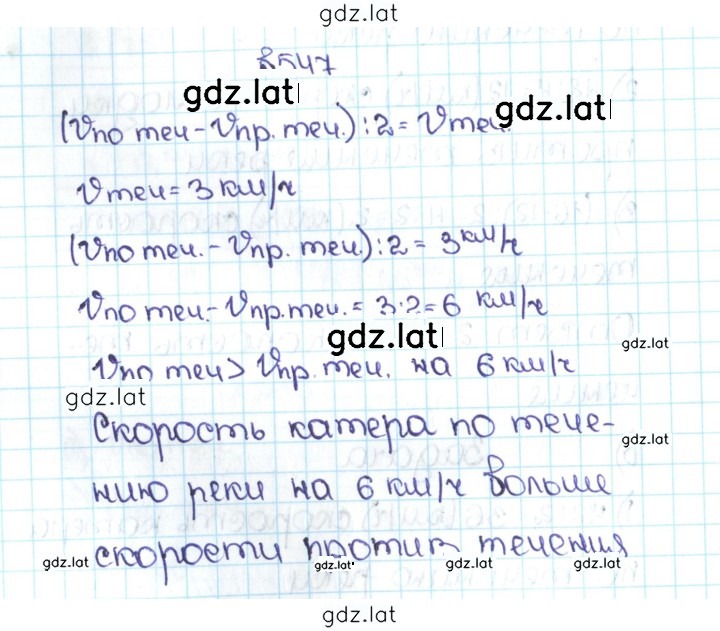 gdz.lat
№547
gdz.lat
gdz.lat
(Vпо теч - Vпр. теч.) : 2 = Vтеч.
Vтеч = 3 км/ч
(Vпо теч. - Vпр. теч.) : 2 = 3 км/ч
Vпо теч. - Vпр. теч. = 3·2 = 6 км/ч
gdz.lat
gdz.lat
Vпо теч > Vпр. теч. на 6 км/ч
gdz.lat
Скорость катера по тече-
gdz.lat
нию реки на 6 км/ч больше
скорости против течения
gdz.lat
gdz.lat
gdz.lat
gdz.lat
gdz.lat